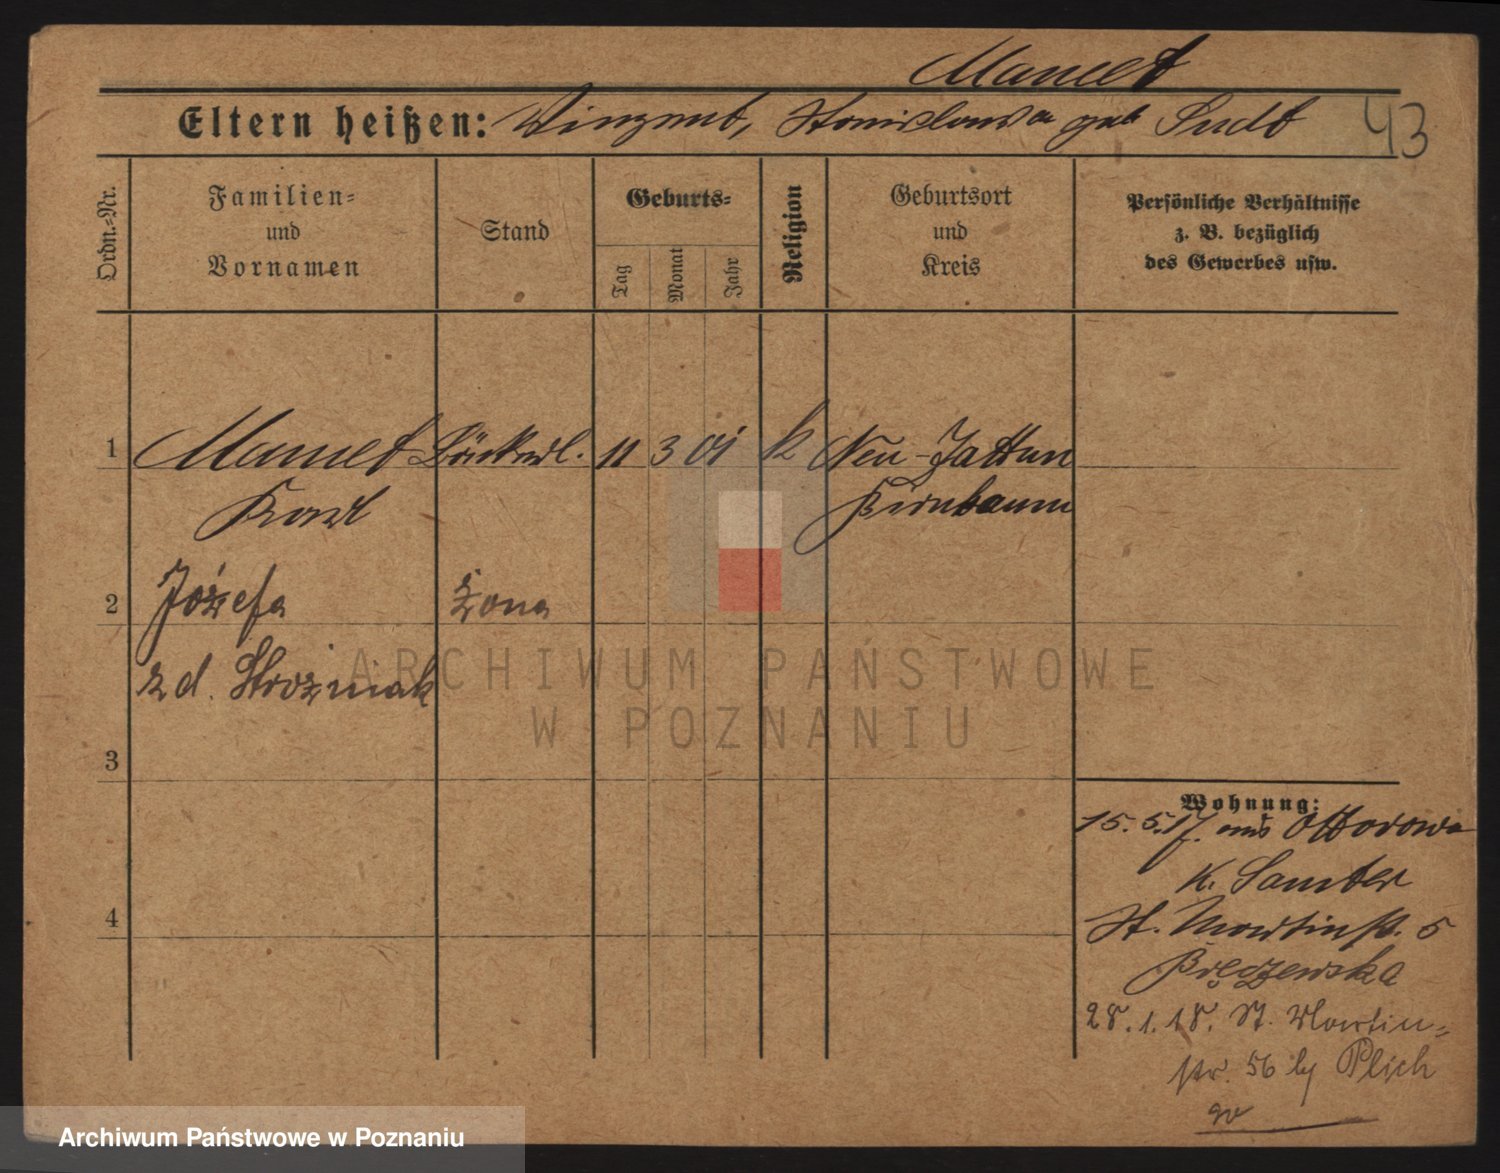 Mamet
Eltern heißen: Vinzent, Stanislawa geb
43
Ordn.=Nr.
Familien=
und
Vornamen
Stand
Geburts=
Tag
Monat
Jahr
Religion
Geburtsort
und
Kreis
Persönliche Verhältnisse
z. B. bezüglich
des Gewerbes usw.
1 Mamet Bäckerl. 11 3 01 k Neu-Zattum
Karl Birnbaum
2 Józefa żona
zd. Stróżniak
3
4
Wohnung:
15.5.17. aus Ottorowo
K. Samter
St. Martinstr. 5
Bręczewska
28.1.18. St. Martin=
str. 56 by Plich
ARCHIWUM PAŃSTWOWE
W POZNANIU
Archiwum Państwowe w Poznaniu